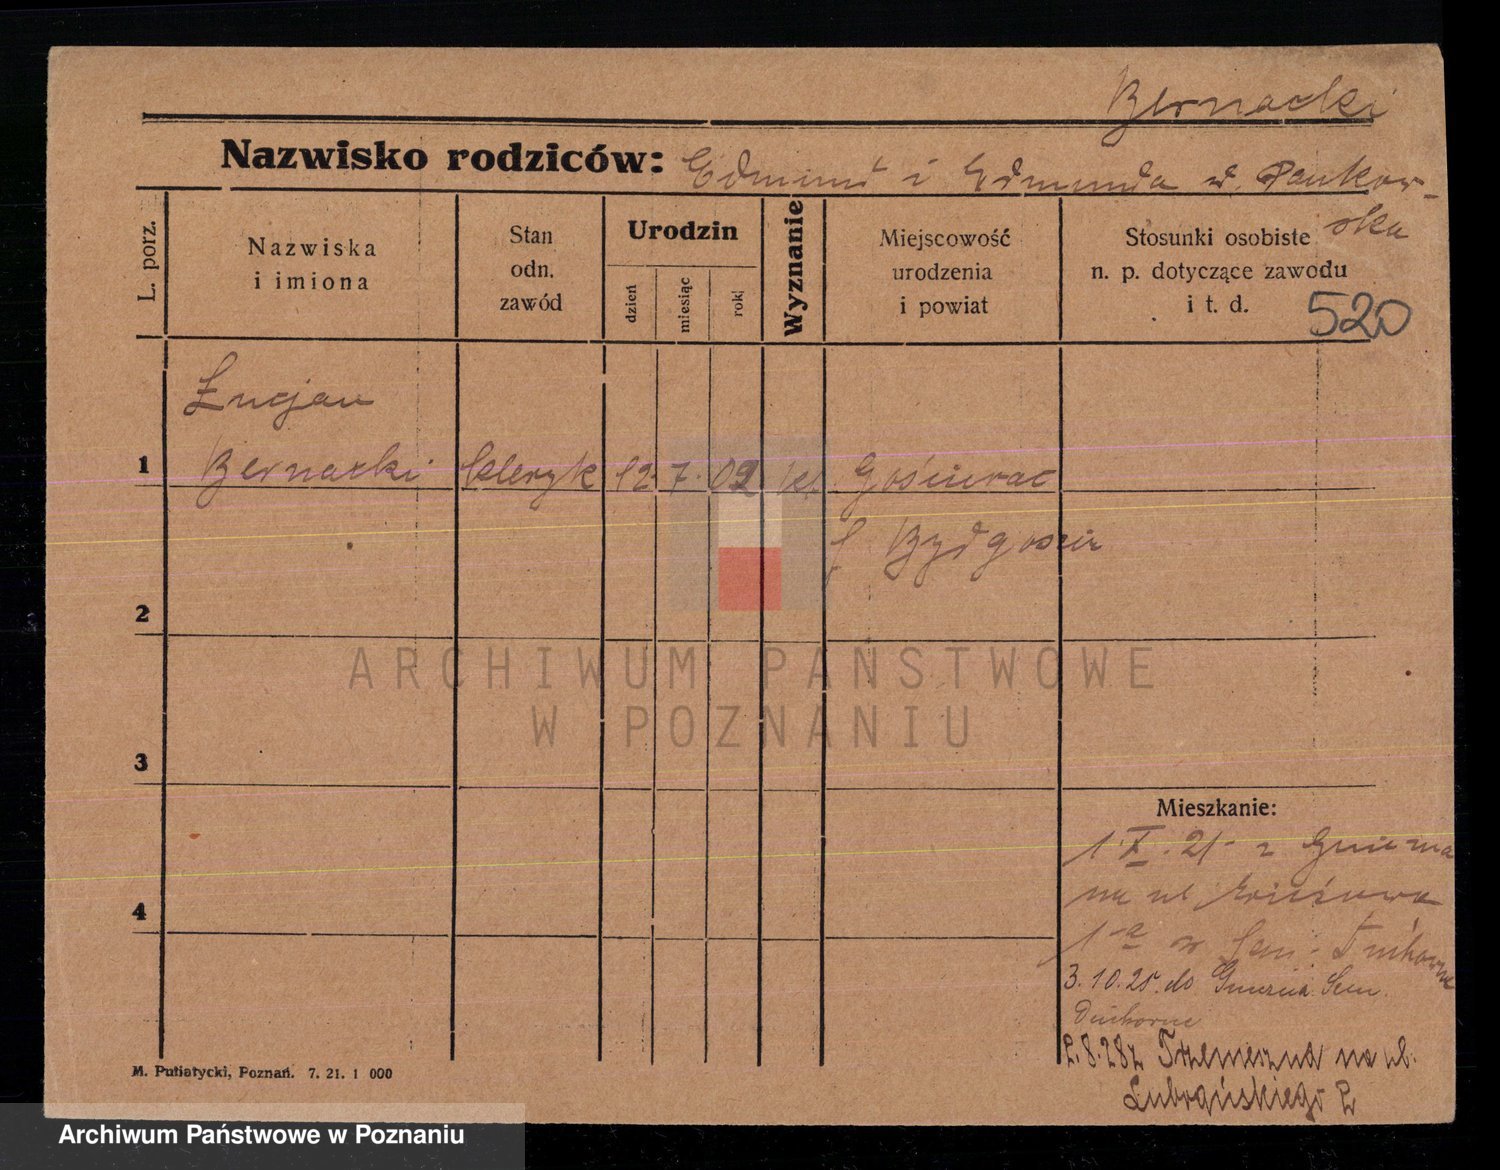 Bernacki
Nazwisko rodziców: Edmund i Edmunda d. Pankow-
ska
L. porz.
Nazwiska
i imiona
Stan
odn.
zawód
Urodzin
dzień
miesiąc
rok
Wyznanie
Miejscowość
urodzenia
i powiat
Stosunki osobiste
n. p. dotyczące zawodu
i t. d.
520
Łucjan
1 Bernacki kleryk 12. 7. 02 kt Gościerac
p Bydgoszcz
2
ARCHIWUM PAŃSTWOWE
W POZNANIU
3
Mieszkanie:
1 X. 21 z Gniezna
na ul
4
1 a w Sem. Duchowne
3. 10. 25. do Gniezna Sem.
Duchowne
2. 8. 28 z Trzemeszna na ul.
Lubrańskiego 2
M. Putiatycki, Poznań. 7. 21. 1 000
Archiwum Państwowe w Poznaniu